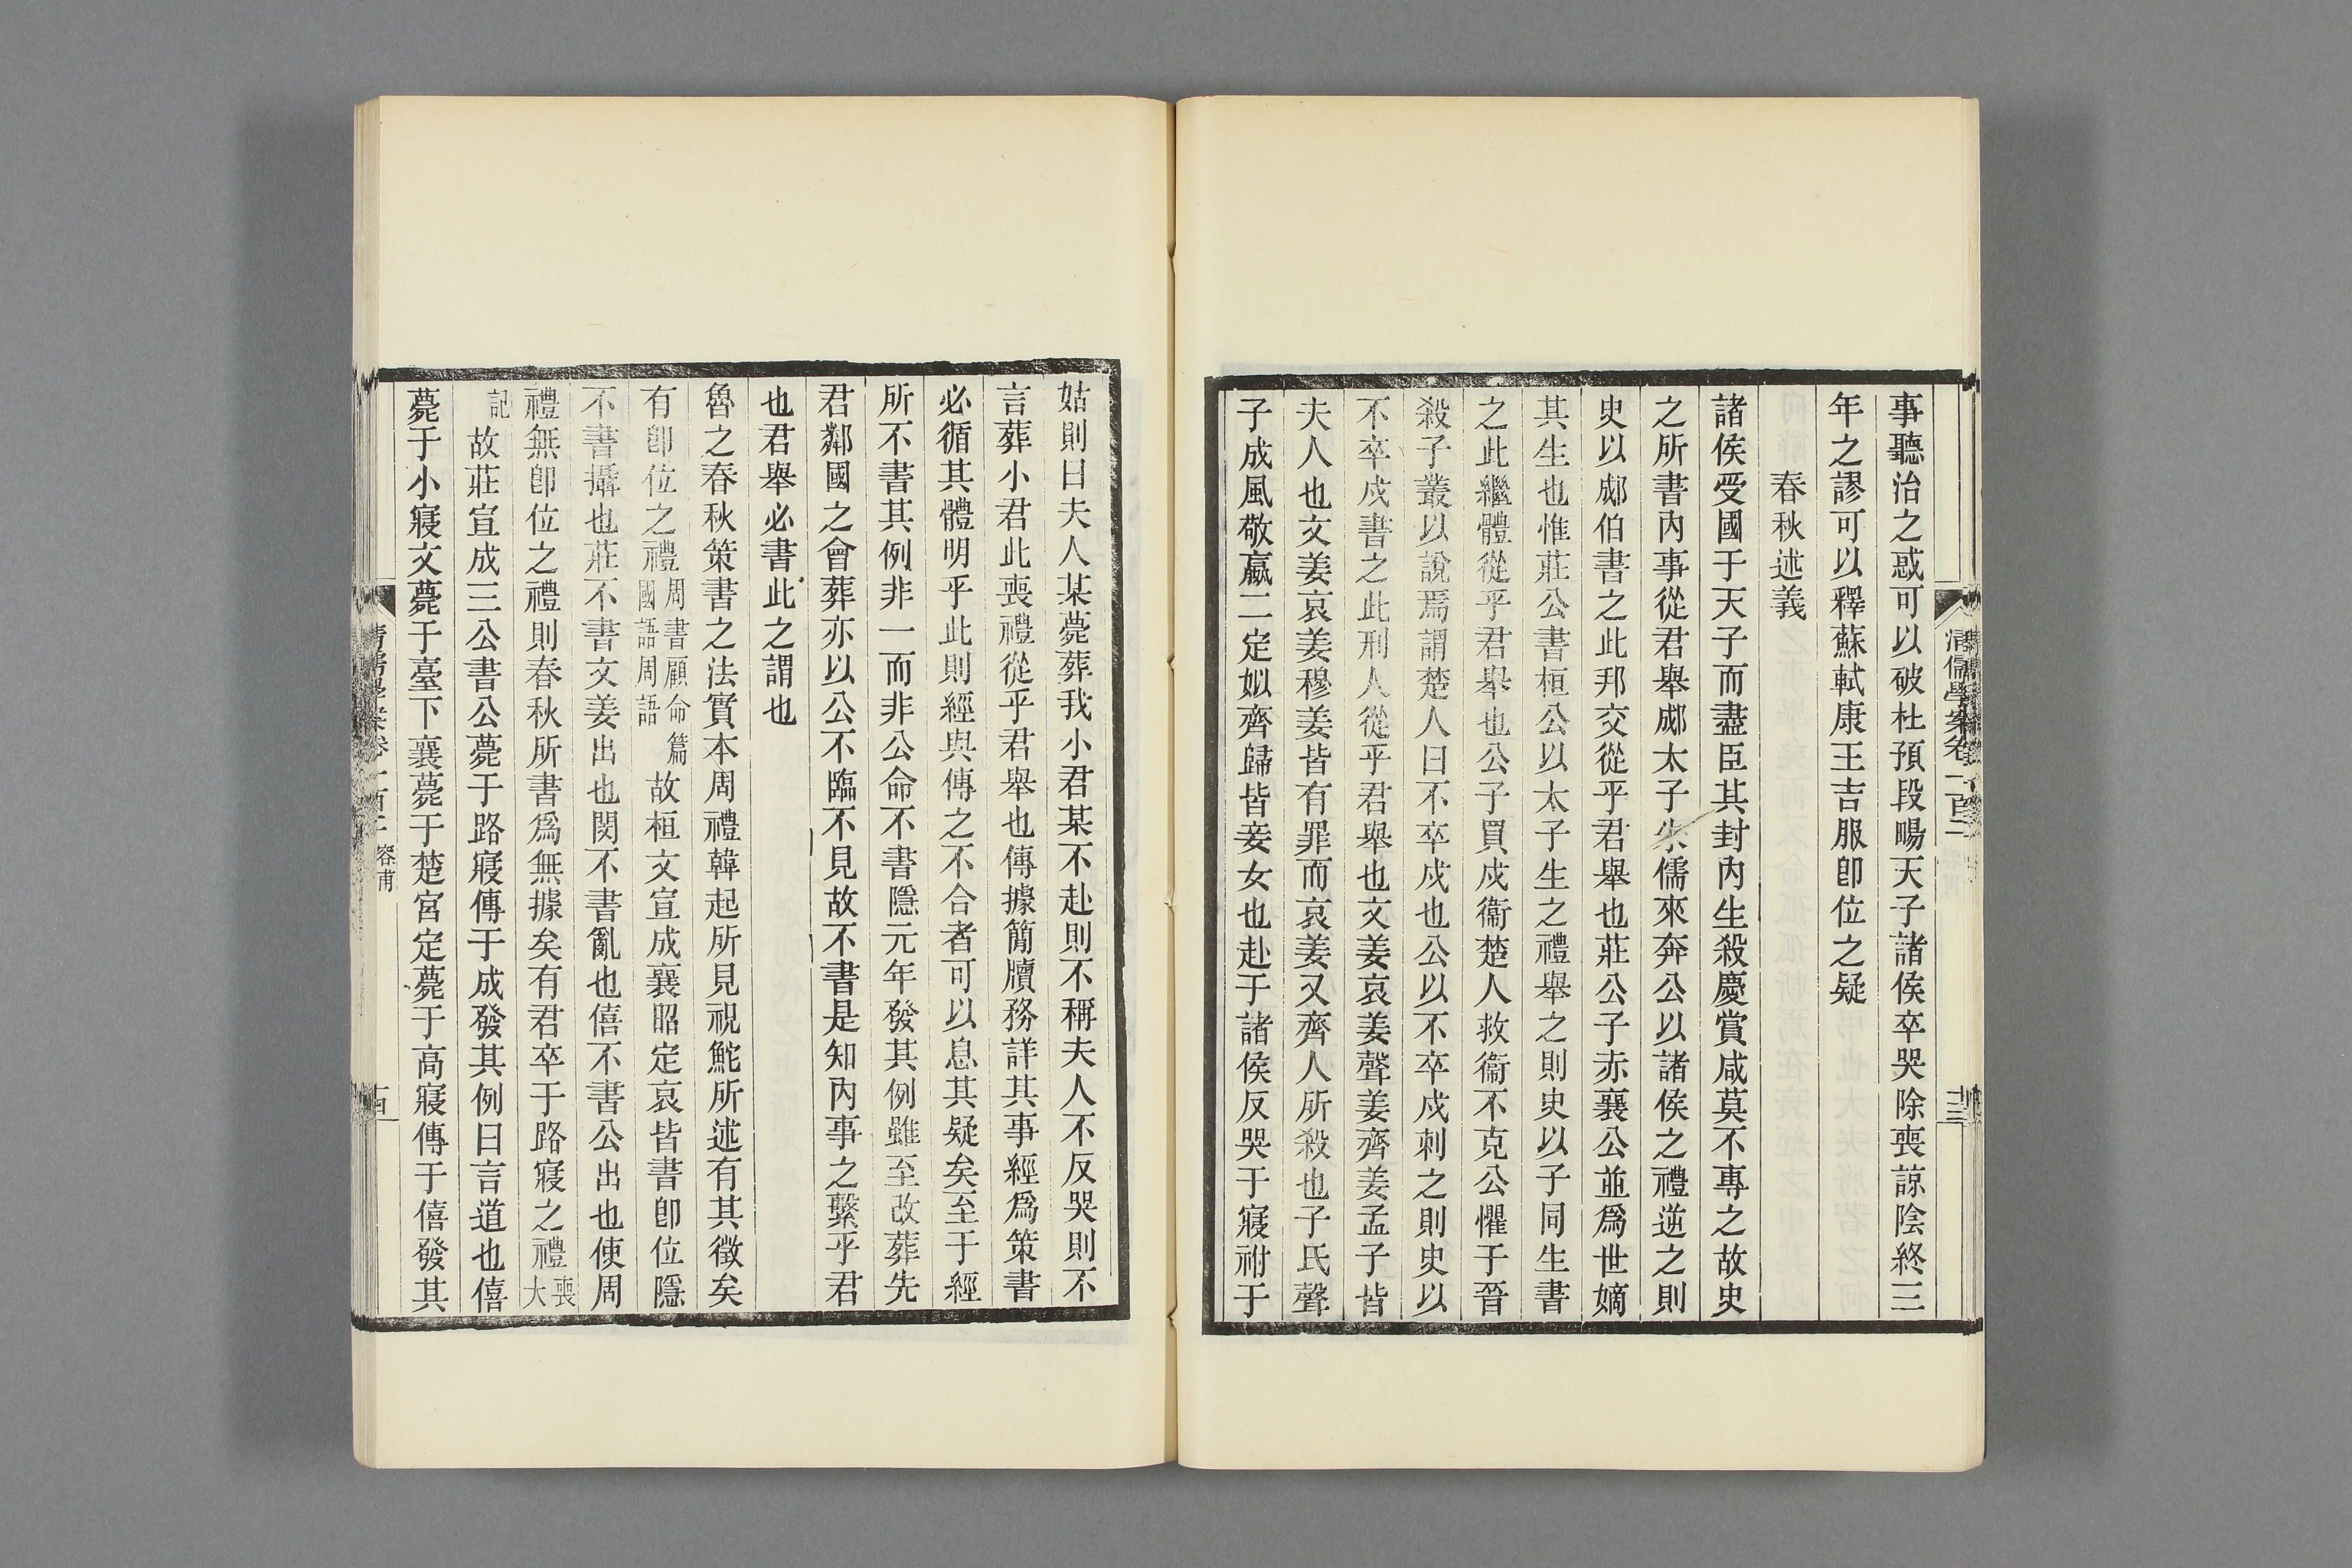 事聽治之惑可以破杜預段暢天子諸侯卒哭除喪諒陰終三
年之謬可以釋蘇軾康王吉服卽位之疑
春秋述義
諸侯受國于天子而盡臣其封內生殺慶賞咸莫不專之故史
之所書內事從君舉郕太子朱儒來奔公以諸侯之禮逆之則
史以郕伯書之此邦交從乎君舉也莊公子赤襄公並爲世嫡
其生也惟莊公書桓公以太子生之禮舉之則史以子同生書
之此繼體從乎君舉也公子買戍衞楚人救衞不克公懼于晉
殺子叢以說焉謂楚人曰不卒戍也公以不卒戍刺之則史以
不卒戍書之此刑人從乎君舉也文姜哀姜聲姜齊姜孟子皆
夫人也文姜哀姜穆姜皆有罪而哀姜又齊人所殺也子氏聲
子成風敬嬴二定姒齊歸皆妾女也赴于諸侯反哭于寢祔于
清儒學案卷一百二
十三
姑則曰夫人某薨葬我小君某不赴則不稱夫人不反哭則不
言葬小君此喪禮從乎君舉也傳據簡牘務詳其事經爲策書
必循其體明乎此則經與傳之不合者可以息其疑矣至于經
所不書其例非一而非公命不書隱元年發其例雖至改葬先
君鄰國之會葬亦以公不臨不見故不書是知內事之繫乎君
也君舉必書此之謂也
魯之春秋策書之法實本周禮韓起所見祝鮀所述有其徵矣
有卽位之禮周書顧命篇國語周語故桓文宣成襄昭定哀皆書卽位隱
不書攝也莊不書文姜出也閔不書亂也僖不書公出也使周
禮無卽位之禮則春秋所書爲無據矣有君卒于路寢之禮喪大
記故莊宣成三公書公薨于路寢傳于成發其例曰言道也僖
薨于小寢文薨于臺下襄薨于楚宮定薨于高寢傳于僖發其
清儒學案卷一百二 容甫
十四